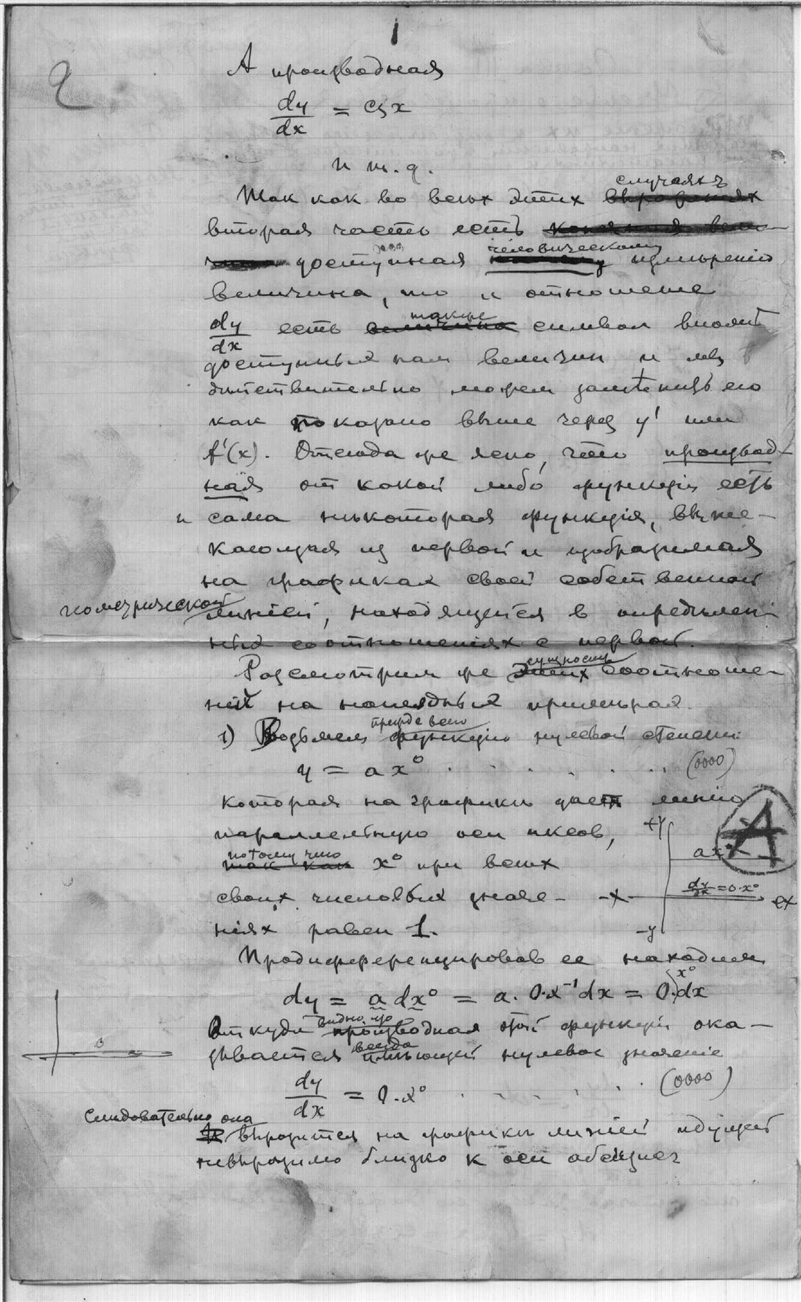 1
2
А производная
dy/dx = cs x
и т. д.
Так какъ во всѣхъ этихъ случаяхъ
вторая часть есть
доступная человѣческому измѣренію
величина, то и отношеніе
dy/dx есть также символъ вполнѣ
доступныхъ намъ величинъ и мы
дѣйствительно можемъ замѣнить его
какъ показано выше через y' или
f'(x). Отсюда же ясно, что производ-
ная от какой либо функціи есть
и сама нѣкоторая функція, выте-
кающая из первой и изображаемая
на графиках своей собственной
геометрической линіей, находящейся в опредѣлен-
ных соотношеніях с первой.
Разсмотрим же сущность соотноше-
ній на наглядных примѣрах.
1) Возьмем прежде всего функцію нулевой степени:
y = ax⁰ . . . . . . (0000)
которая на графики дает линію
параллельную оси иксов,
потому что x⁰ при всѣх
своих числовых значе-
ніях равен 1.
+y
ax
A
dy/dx = 0·x⁰
-x
+x
-y
Продифференцировав ее находим
dy = a dx⁰ = a. 0.x⁻¹dx = 0.x⁰ dx
Откуда видно, что производная этой функціи ока-
зывается всегда имѣющей нулевое значеніе
dy/dx = 0.x⁰ . . . . . (0000)
0
Слѣдовательно она
выразится на графики линіей идущей
невыразимо близко к оси абсцисс